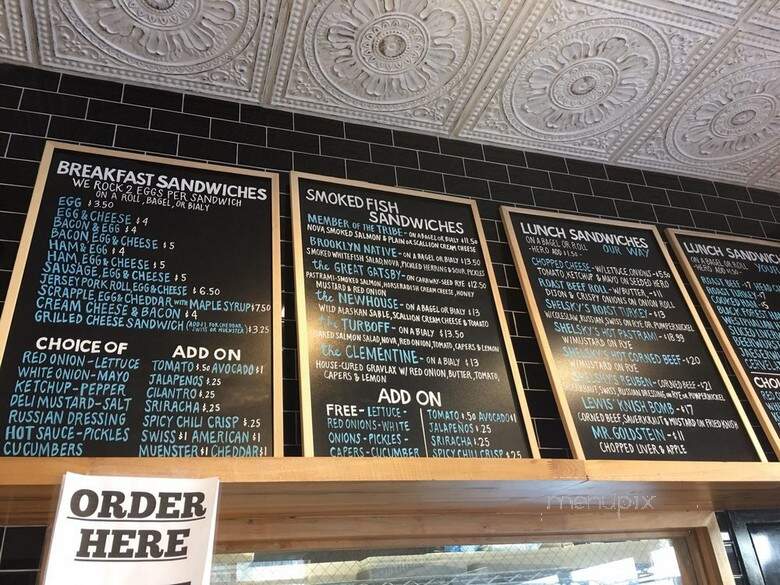 BREAKFAST SANDWICHES
WE ROCK 2 EGGS PER SANDWICH
ON A ROLL, BAGEL, OR BIALY
EGG $3.50
EGG & CHEESE $4
BACON & EGG $4
BACON, EGG & CHEESE $5
HAM & EGG $4
HAM, EGG & CHEESE $5
SAUSAGE, EGG & CHEESE $5
JERSEY PORK ROLL, EGG & CHEESE $6.50
SCRAPPLE, EGG & CHEDDAR WITH MAPLE SYRUP $7.50
CREAM CHEESE & BACON $4
GRILLED CHEESE SANDWICH (ADD $1 FOR CHEDDAR, SWISS OR MUENSTER) $3.25
CHOICE OF
RED ONION - LETTUCE
WHITE ONION - MAYO
KETCHUP - PEPPER
DELI MUSTARD - SALT
RUSSIAN DRESSING
HOT SAUCE - PICKLES
CUCUMBERS
ADD ON
TOMATO $.50 AVOCADO $1
JALAPENOS $.25
CILANTRO $.25
SRIRACHA $.25
SPICY CHILI CRISP $.25
SWISS $1 AMERICAN $1
MUENSTER $1 CHEDDAR $1
SMOKED FISH
SANDWICHES
MEMBER OF THE TRIBE - ON A BAGEL OR BIALY $11.50
NOVA SMOKED SALMON & PLAIN OR SCALLION CREAM CHEESE
BROOKLYN NATIVE - ON A BAGEL OR BIALY $13.50
SMOKED WHITEFISH SALAD, NOVA, PICKLED HERRING & SOUR PICKLES
the GREAT GATSBY - ON CARAWAY-SEED RYE $12.50
PASTRAMI-SMOKED SALMON, HORSERADISH CREAM CHEESE, HONEY
MUSTARD & RED ONION
the NEWHOUSE - ON A BAGEL OR BIALY $13
WILD ALASKAN SABLE, SCALLION CREAM CHEESE & TOMATO
the TURBOFF - ON A BIALY $13.50
SALMON SALAD, NOVA, RED ONION, TOMATO, CAPERS & LEMON
the CLEMENTINE - ON A BIALY $13
HOUSE-CURED GRAVLAX W/ RED ONION, BUTTER, TOMATO,
CAPERS & LEMON
ADD ON
FREE - LETTUCE -
RED ONIONS - WHITE
ONIONS - PICKLES -
CAPERS - CUCUMBER
TOMATO $.50 AVOCADO $1
JALAPENOS $.25
SRIRACHA $.25
SPICY CHILI CRISP $.25
LUNCH SANDWICHES
ON A BAGEL OR ROLL OUR WAY
- HERO ADD $1.50 -
CHOPPED CHEESE - W/ LETTUCE ONIONS
TOMATO, KETCHUP & MAYO ON SEEDED HERO
ROAST BEEF ROLL
ONION & CRISPY ONIONS ON ONION ROLL
SHELSKY'S ROAST TURKEY - $13
W/ COLESLAW, RUSSIAN, SWISS ON RYE OR PUMPERNICKEL
SHELSKY'S HOT PASTRAMI - $18.99
W/ MUSTARD ON RYE
SHELSKY'S HOT CORNED BEEF - $20
W/ MUSTARD ON RYE
SHELSKY'S REUBEN - CORNED BEEF - $21
SAUERKRAUT, SWISS, RUSSIAN DRESSING, ON RYE OR PUMPERNICKEL
LEWIS' KNISH BOMB - $17
CORNED BEEF, SAUERKRAUT & MUSTARD ON FRIED KNISH
MR. GOLDSTEIN - $11
CHOPPED LIVER & APPLE
LUNCH SANDWIC
ON A BAGEL OR ROLL
HERO ADD
ROAST BEEF
ORDER
HERE
menupix